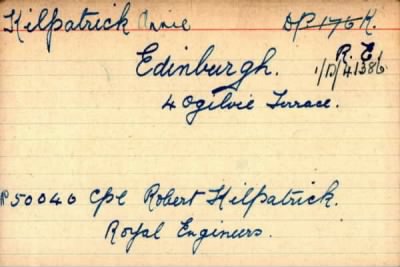 Kilpatrick Annie DP 175 K.
Edinburgh. R.E.
1/D/41386
4 Ogilvie Terrace.
P50040 Cpl Robert Kilpatrick.
Royal Engineers.